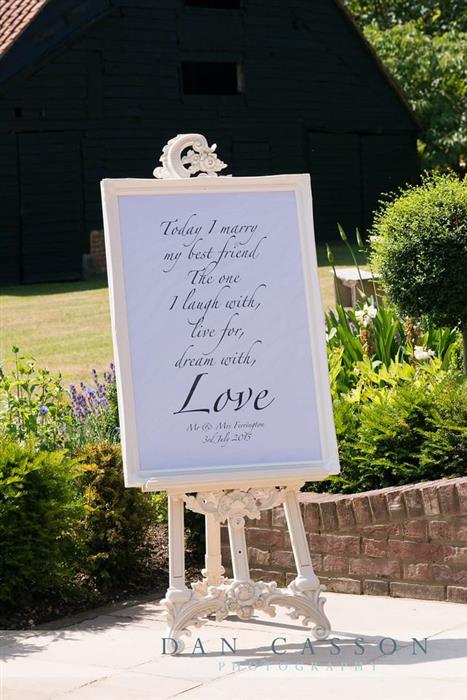 Today I marry
my best friend
The one
I laugh with,
live for,
dream with,
Love
Mr & Mrs Ferrington
3rd July 2015
DAN CASSON
PHOTOGRAPHY